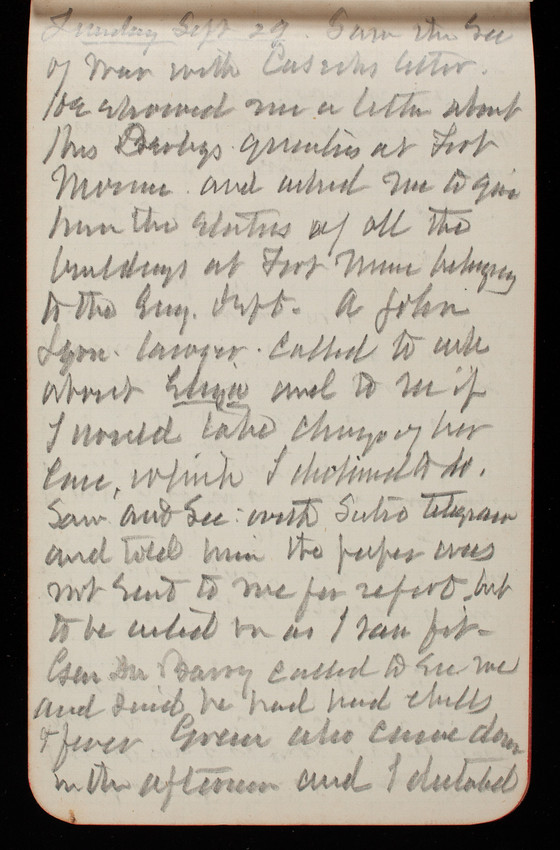 Sept 29. Saw the Sec
of War with Caseys letter.
He showed me a letter about
this quarters at Fort
Monroe and asked me to give
him the status of all the
buildings at Fort Monroe belonging
to the Eng. Dept. A John
Lyon lawyer called to ask
about Eliza and to see if
I would take charge of her
case, which I declined to do.
Saw and Sec with Sutro telegram
and told him the paper was
not sent to me for report but
to be acted on as I saw fit.
Gen Du Barry called to see me
and said he had had chills
& fever. Green also came down
in the afternoon and I dictated